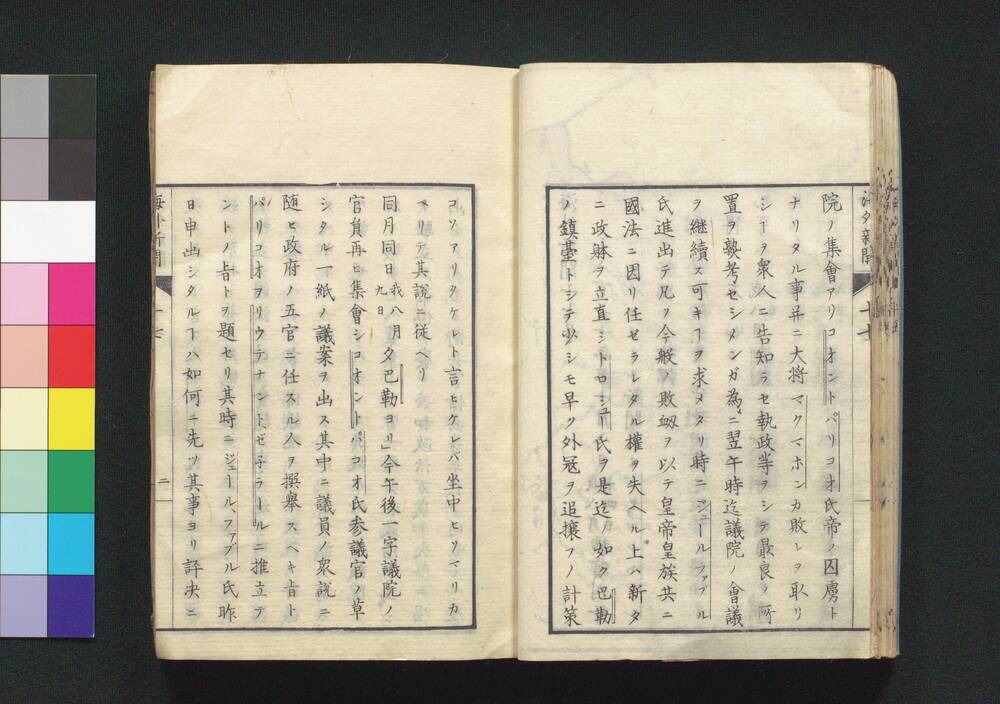 海外新聞
十七
院ノ集會アリコオントパリコオ氏帝ノ囚虜ト
ナリタル事并ニ大将マクマホンカ敗レヲ取リ
シヿヲ衆人ニ告知ラセ執政等ヲシテ最良ノ所
置ヲ熟考セシメンガ為ニ翌午時迄議院ノ會議
ヲ継續ス可キヿヲ求メタリ時ニジュールファブル
氏進出テ凡ソ今般ノ敗衂ヲ以テ皇帝皇族共ニ
國法ニ因リ任ゼラレタル權ヲ失ヘル上ハ新タ
ニ政躰ヲ立直シトロシュー氏ヲ是迄ノ如ク巴勒
ノ鎮臺トシテ少シモ早ク外冦ヲ追攘フノ計策
コソアリタケレト言ヒケレバ坐中ヒソマリカ
ヘリテ其説ニ従ヘリ
同月同日我八月九日夕巴勒ヨリ」今午後一字議院ノ
官負再ヒ集會シコオントパコオ氏参議官ノ草
シタル一紙ノ議案ヲ出ス其中ニ議員ノ衆説ニ
随ヒ政府ノ五官ニ任スル人ヲ撰舉スヘキ旨ト
パリコオヲリウテナントゼ子ラールニ推立テ
ントノ旨トヲ題セリ其時ニジュール、ファブル氏昨
日申出シタルヿハ如何ニ先ツ其事ヨリ評決ニ
海外新聞
十七
二